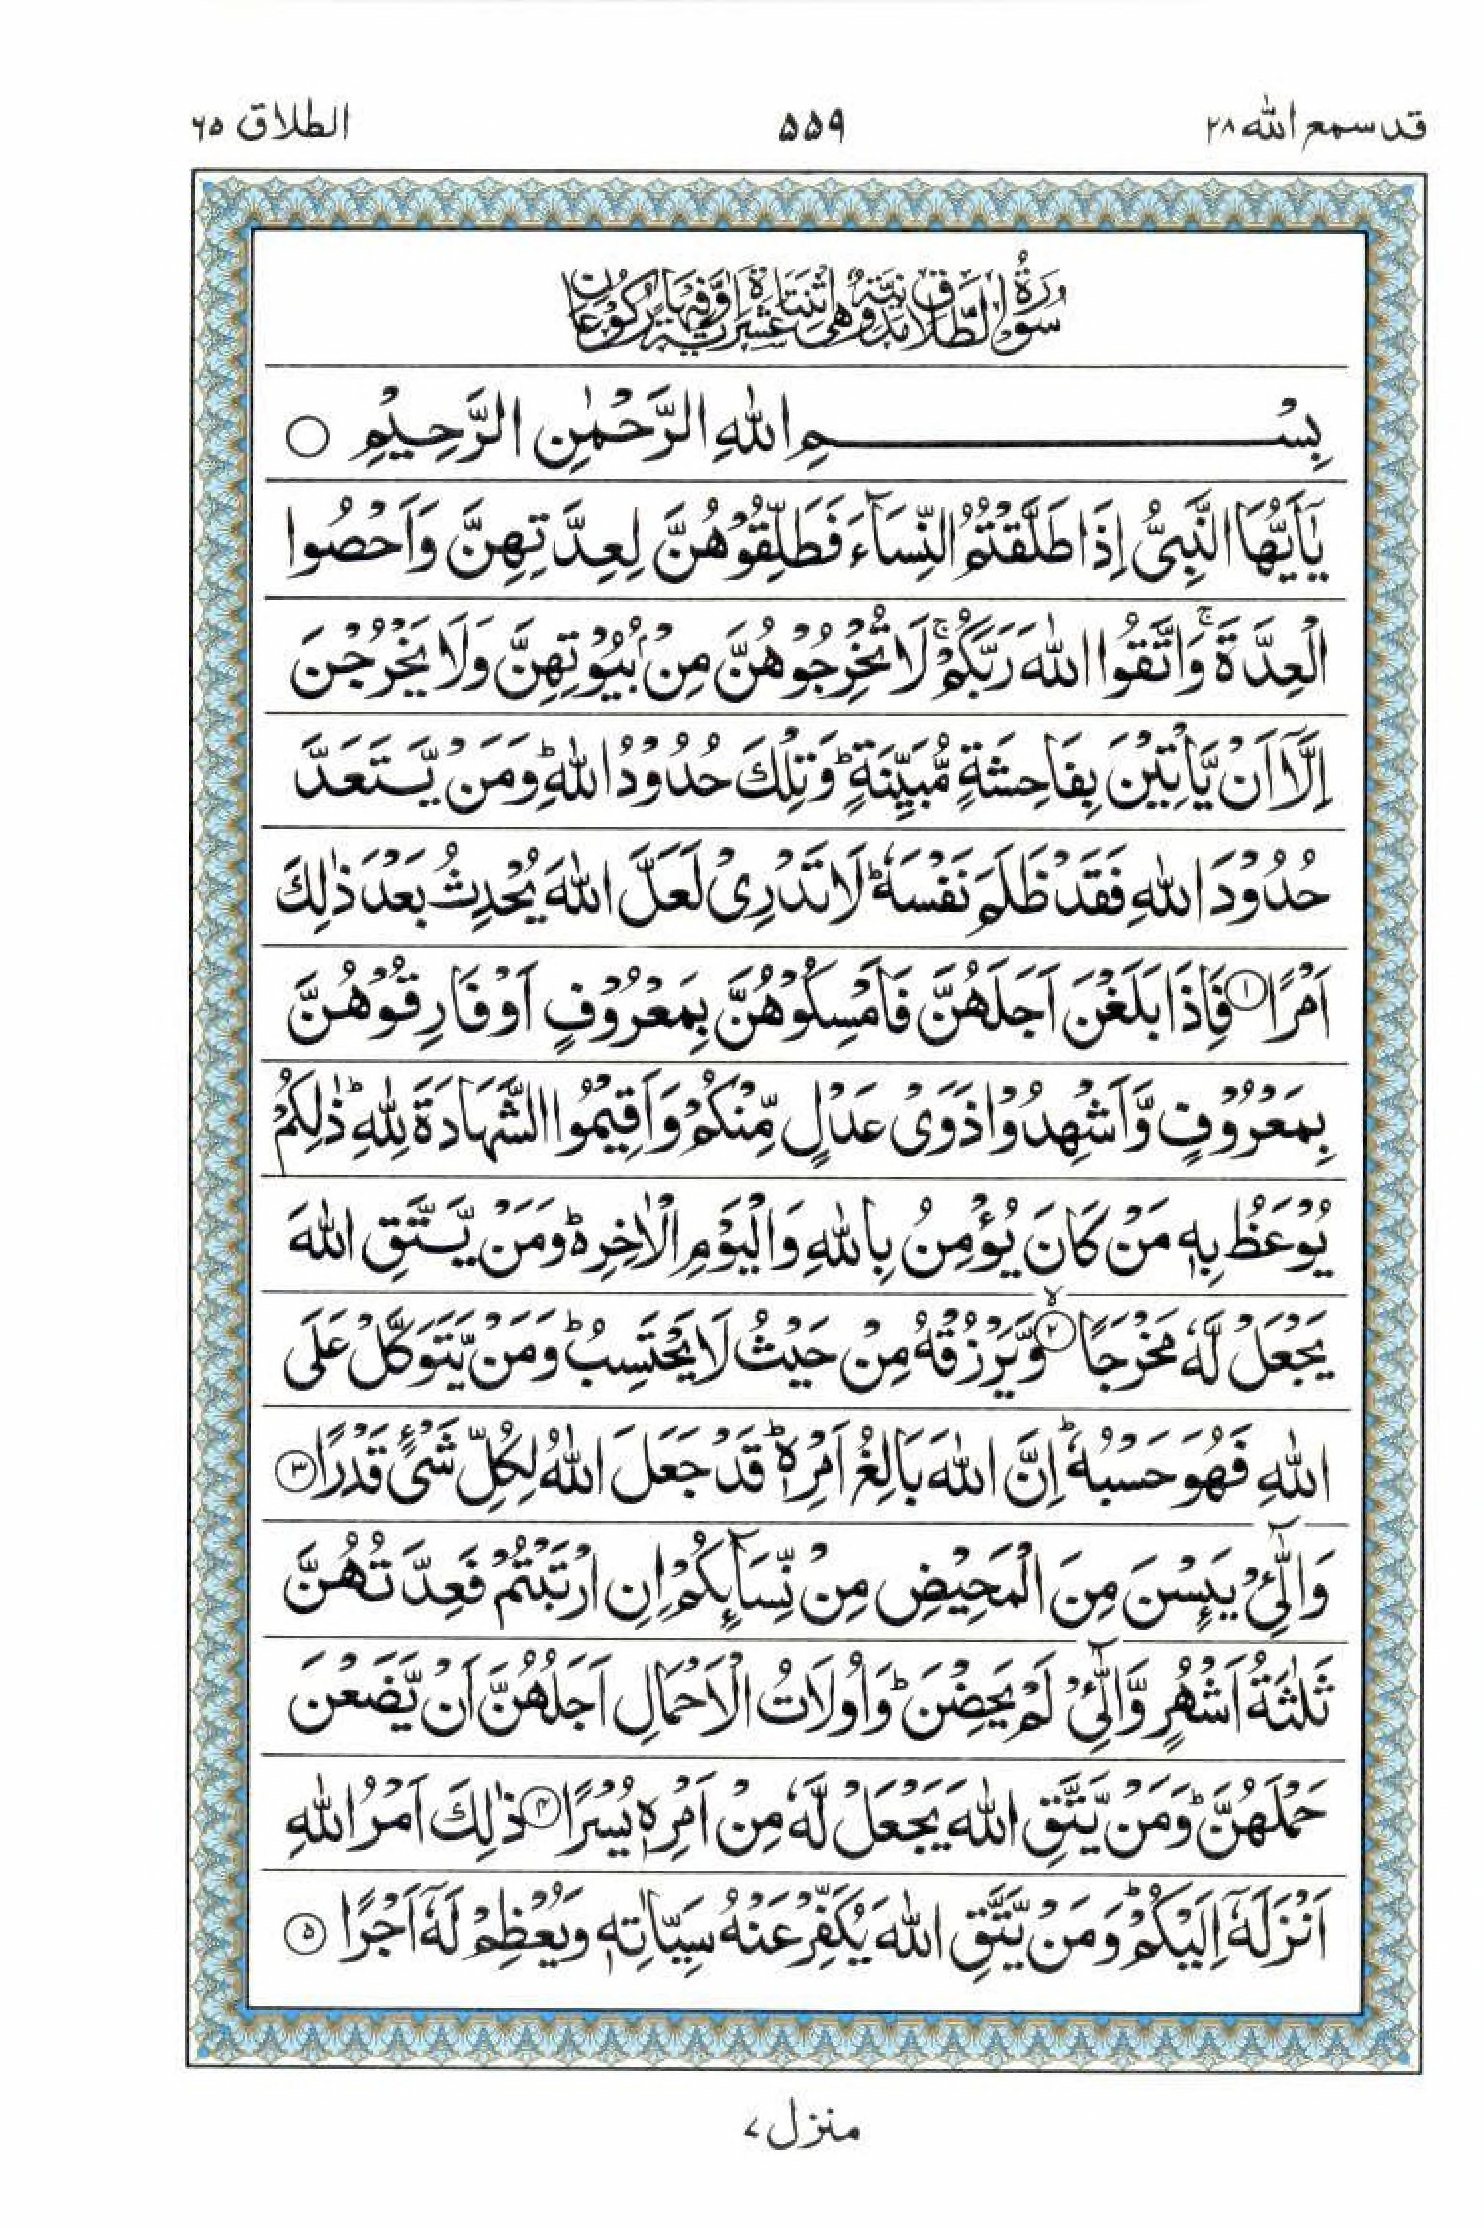 قد سمع الله ۲۸
۵۵۹
الطلاق ۶۵
سُوْرَةُ الطَّلَاقِ مَدَنِيَّةٌ وَّهِيَ اثْنَتَا عَشْرَةَ اٰيَةً وَّفِيْهَا رُكُوْعَانِ
بِسْمِ اللهِ الرَّحْمٰنِ الرَّحِيْمِ ○
يٰۤاَيُّهَا النَّبِيُّ اِذَا طَلَّقْتُمُ النِّسَآءَ فَطَلِّقُوْهُنَّ لِعِدَّتِهِنَّ وَاَحْصُوا
الْعِدَّةَ ۚ وَاتَّقُوا اللهَ رَبَّكُمْ ۚ لَا تُخْرِجُوْهُنَّ مِنْۢ بُيُوْتِهِنَّ وَلَا يَخْرُجْنَ
اِلَّاۤ اَنْ يَّاْتِيْنَ بِفَاحِشَةٍ مُّبَيِّنَةٍ ؕ وَتِلْكَ حُدُوْدُ اللهِ ؕ وَمَنْ يَّتَعَدَّ
حُدُوْدَ اللهِ فَقَدْ ظَلَمَ نَفْسَهٗ ؕ لَا تَدْرِيْ لَعَلَّ اللهَ يُحْدِثُ بَعْدَ ذٰلِكَ
اَمْرًا ۱ فَاِذَا بَلَغْنَ اَجَلَهُنَّ فَاَمْسِكُوْهُنَّ بِمَعْرُوْفٍ اَوْ فَارِقُوْهُنَّ
بِمَعْرُوْفٍ وَّاَشْهِدُوْا ذَوَيْ عَدْلٍ مِّنْكُمْ وَاَقِيْمُوا الشَّهَادَةَ لِلّٰهِ ؕ ذٰلِكُمْ
يُوْعَظُ بِهٖ مَنْ كَانَ يُؤْمِنُ بِاللهِ وَالْيَوْمِ الْاٰخِرِ ؕ وَمَنْ يَّتَّقِ اللهَ
يَجْعَلْ لَّهٗ مَخْرَجًا ۲ۙ وَّيَرْزُقْهُ مِنْ حَيْثُ لَا يَحْتَسِبُ ؕ وَمَنْ يَّتَوَكَّلْ عَلَى
اللهِ فَهُوَ حَسْبُهٗ ؕ اِنَّ اللهَ بَالِغُ اَمْرِهٖ ؕ قَدْ جَعَلَ اللهُ لِكُلِّ شَيْءٍ قَدْرًا ۳
وَالّٰٓـِٔيْ يَىِٕسْنَ مِنَ الْمَحِيْضِ مِنْ نِّسَآىِٕكُمْ اِنِ ارْتَبْتُمْ فَعِدَّتُهُنَّ
ثَلٰثَةُ اَشْهُرٍ وَّالّٰٓـِٔيْ لَمْ يَحِضْنَ ؕ وَاُولَاتُ الْاَحْمَالِ اَجَلُهُنَّ اَنْ يَّضَعْنَ
حَمْلَهُنَّ ؕ وَمَنْ يَّتَّقِ اللهَ يَجْعَلْ لَّهٗ مِنْ اَمْرِهٖ يُسْرًا ۴ ذٰلِكَ اَمْرُ اللهِ
اَنْزَلَهٗۤ اِلَيْكُمْ ؕ وَمَنْ يَّتَّقِ اللهَ يُكَفِّرْ عَنْهُ سَيِّاٰتِهٖ وَيُعْظِمْ لَهٗۤ اَجْرًا ۵
منزل ۷